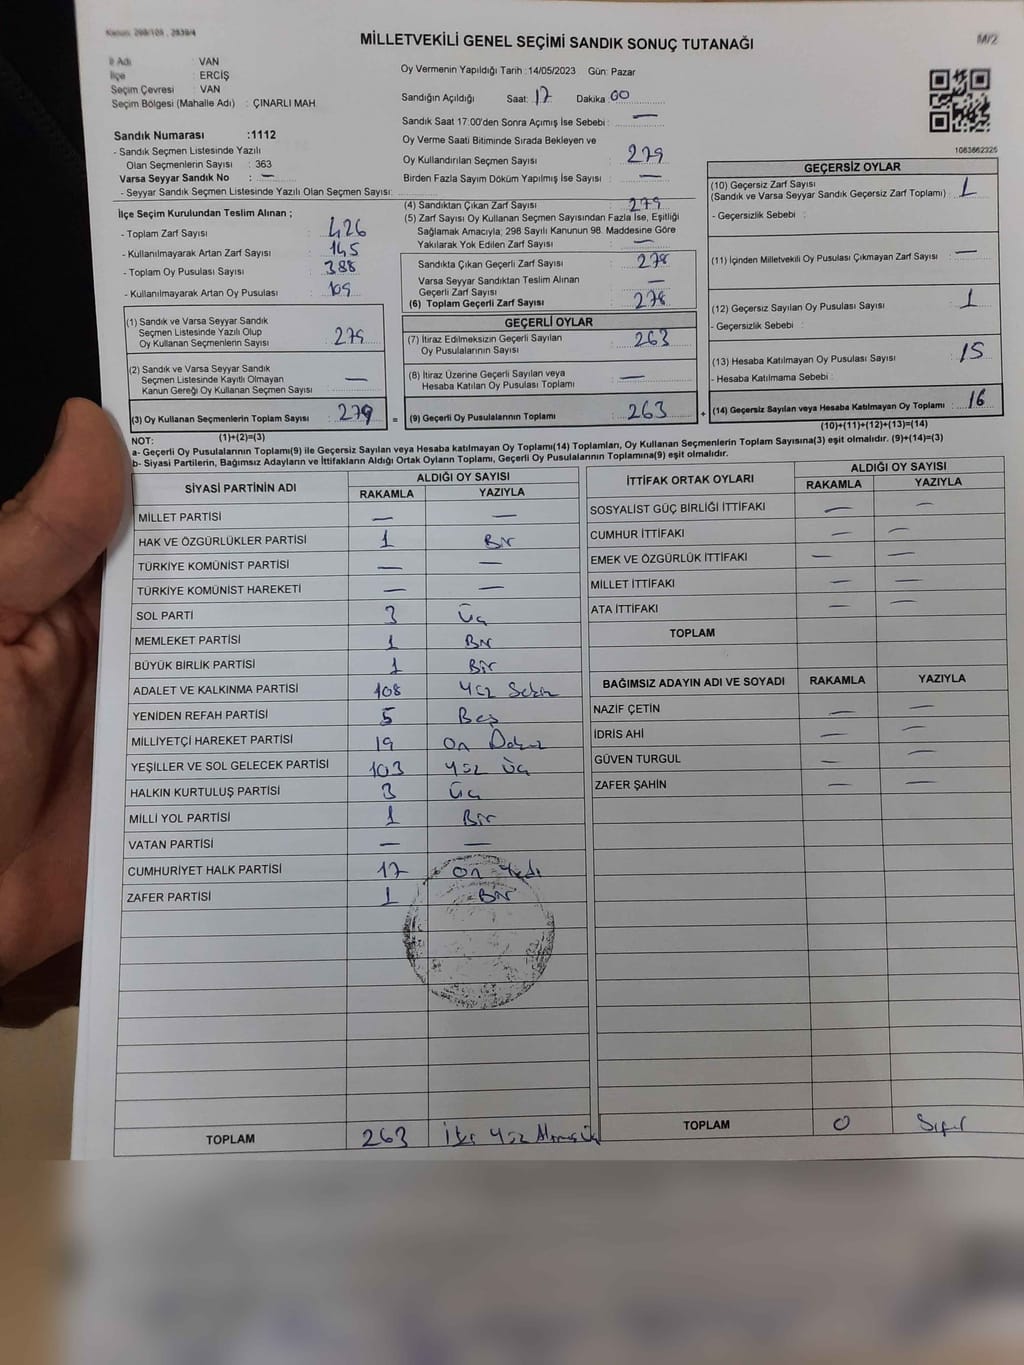 Kanun: 298/105 , 2839/4
MİLLETVEKİLİ GENEL SEÇİMİ SANDIK SONUÇ TUTANAĞI
M/2
İl Adı : VAN
İlçe : ERCİŞ
Seçim Çevresi : VAN
Seçim Bölgesi (Mahalle Adı) : ÇINARLI MAH.
Sandık Numarası :1112
- Sandık Seçmen Listesinde Yazılı
Olan Seçmenlerin Sayısı : 363
Varsa Seyyar Sandık No : —
- Seyyar Sandık Seçmen Listesinde Yazılı Olan Seçmen Sayısı:
Oy Vermenin Yapıldığı Tarih :14/05/2023 Gün: Pazar
Sandığın Açıldığı Saat: 17 Dakika 00
Sandık Saat 17:00'den Sonra Açımış İse Sebebi : —
Oy Verme Saati Bitiminde Sırada Bekleyen ve
Oy Kullandırılan Seçmen Sayısı : 279
Birden Fazla Sayım Döküm Yapılmış İse Sayısı : —
1083662325
İlçe Seçim Kurulundan Teslim Alınan ;
- Toplam Zarf Sayısı : 426
- Kullanılmayarak Artan Zarf Sayısı : 145
- Toplam Oy Pusulası Sayısı : 388
- Kullanılmayarak Artan Oy Pusulası : 109
(1) Sandık ve Varsa Seyyar Sandık
Seçmen Listesinde Yazılı Olup
Oy Kullanan Seçmenlerin Sayısı : 279
(2) Sandık ve Varsa Seyyar Sandık
Seçmen Listesinde Kayıtlı Olmayan
Kanun Gereği Oy Kullanan Seçmen Sayısı : —
(3) Oy Kullanan Seçmenlerin Toplam Sayısı : 279
(1)+(2)=(3)
(4) Sandıktan Çıkan Zarf Sayısı : 279
(5) Zarf Sayısı Oy Kullanan Seçmen Sayısından Fazla İse, Eşitliği
Sağlamak Amacıyla; 298 Sayılı Kanunun 98. Maddesine Göre
Yakılarak Yok Edilen Zarf Sayısı : —
Sandıkta Çıkan Geçerli Zarf Sayısı : 278
Varsa Seyyar Sandıktan Teslim Alınan
Geçerli Zarf Sayısı : —
(6) Toplam Geçerli Zarf Sayısı : 278
GEÇERLİ OYLAR
(7) İtiraz Edilmeksizin Geçerli Sayılan
Oy Pusulalarının Sayısı : 263
(8) İtiraz Üzerine Geçerli Sayılan veya
Hesaba Katılan Oy Pusulası Toplamı : —
= (9) Geçerli Oy Pusulalarının Toplamı : 263
GEÇERSİZ OYLAR
(10) Geçersiz Zarf Sayısı
(Sandık ve Varsa Seyyar Sandık Geçersiz Zarf Toplamı) : 1
- Geçersizlik Sebebi :
(11) İçinden Milletvekili Oy Pusulası Çıkmayan Zarf Sayısı : —
(12) Geçersiz Sayılan Oy Pusulası Sayısı : 1
- Geçersizlik Sebebi :
(13) Hesaba Katılmayan Oy Pusulası Sayısı : 15
- Hesaba Katılmama Sebebi :
+ (14) Geçersiz Sayılan veya Hesaba Katılmayan Oy Toplamı : 16
(10)+(11)+(12)+(13)=(14)
NOT:
a- Geçerli Oy Pusulalarının Toplamı(9) ile Geçersiz Sayılan veya Hesaba katılmayan Oy Toplamı(14) Toplamları, Oy Kullanan Seçmenlerin Toplam Sayısına(3) eşit olmalıdır. (9)+(14)=(3)
b- Siyasi Partilerin, Bağımsız Adayların ve İttifakların Aldığı Ortak Oyların Toplamı, Geçerli Oy Pusulalarının Toplamına(9) eşit olmalıdır.
SİYASİ PARTİNİN ADI ALDIĞI OY SAYISI
RAKAMLA YAZIYLA
MİLLET PARTİSİ — —
HAK VE ÖZGÜRLÜKLER PARTİSİ 1 Bir
TÜRKİYE KOMÜNİST PARTİSİ — —
TÜRKİYE KOMÜNİST HAREKETİ — —
SOL PARTİ 3 Üç
MEMLEKET PARTİSİ 1 Bir
BÜYÜK BİRLİK PARTİSİ 1 Bir
ADALET VE KALKINMA PARTİSİ 108 Yüz Sekiz
YENİDEN REFAH PARTİSİ 5 Beş
MİLLİYETÇİ HAREKET PARTİSİ 19 On Dokuz
YEŞİLLER VE SOL GELECEK PARTİSİ 103 Yüz Üç
HALKIN KURTULUŞ PARTİSİ 3 Üç
MİLLİ YOL PARTİSİ 1 Bir
VATAN PARTİSİ — —
CUMHURİYET HALK PARTİSİ 17 On Yedi
ZAFER PARTİSİ 1 Bir
TOPLAM 263 İki Yüz Altmış Üç
İTTİFAK ORTAK OYLARI ALDIĞI OY SAYISI
RAKAMLA YAZIYLA
SOSYALİST GÜÇ BİRLİĞİ İTTİFAKI — —
CUMHUR İTTİFAKI — —
EMEK VE ÖZGÜRLÜK İTTİFAKI — —
MİLLET İTTİFAKI — —
ATA İTTİFAKI — —
TOPLAM
BAĞIMSIZ ADAYIN ADI VE SOYADI RAKAMLA YAZIYLA
NAZİF ÇETİN — —
İDRİS AHİ — —
GÜVEN TURGUL — —
ZAFER ŞAHİN — —
TOPLAM 0 Sıfır